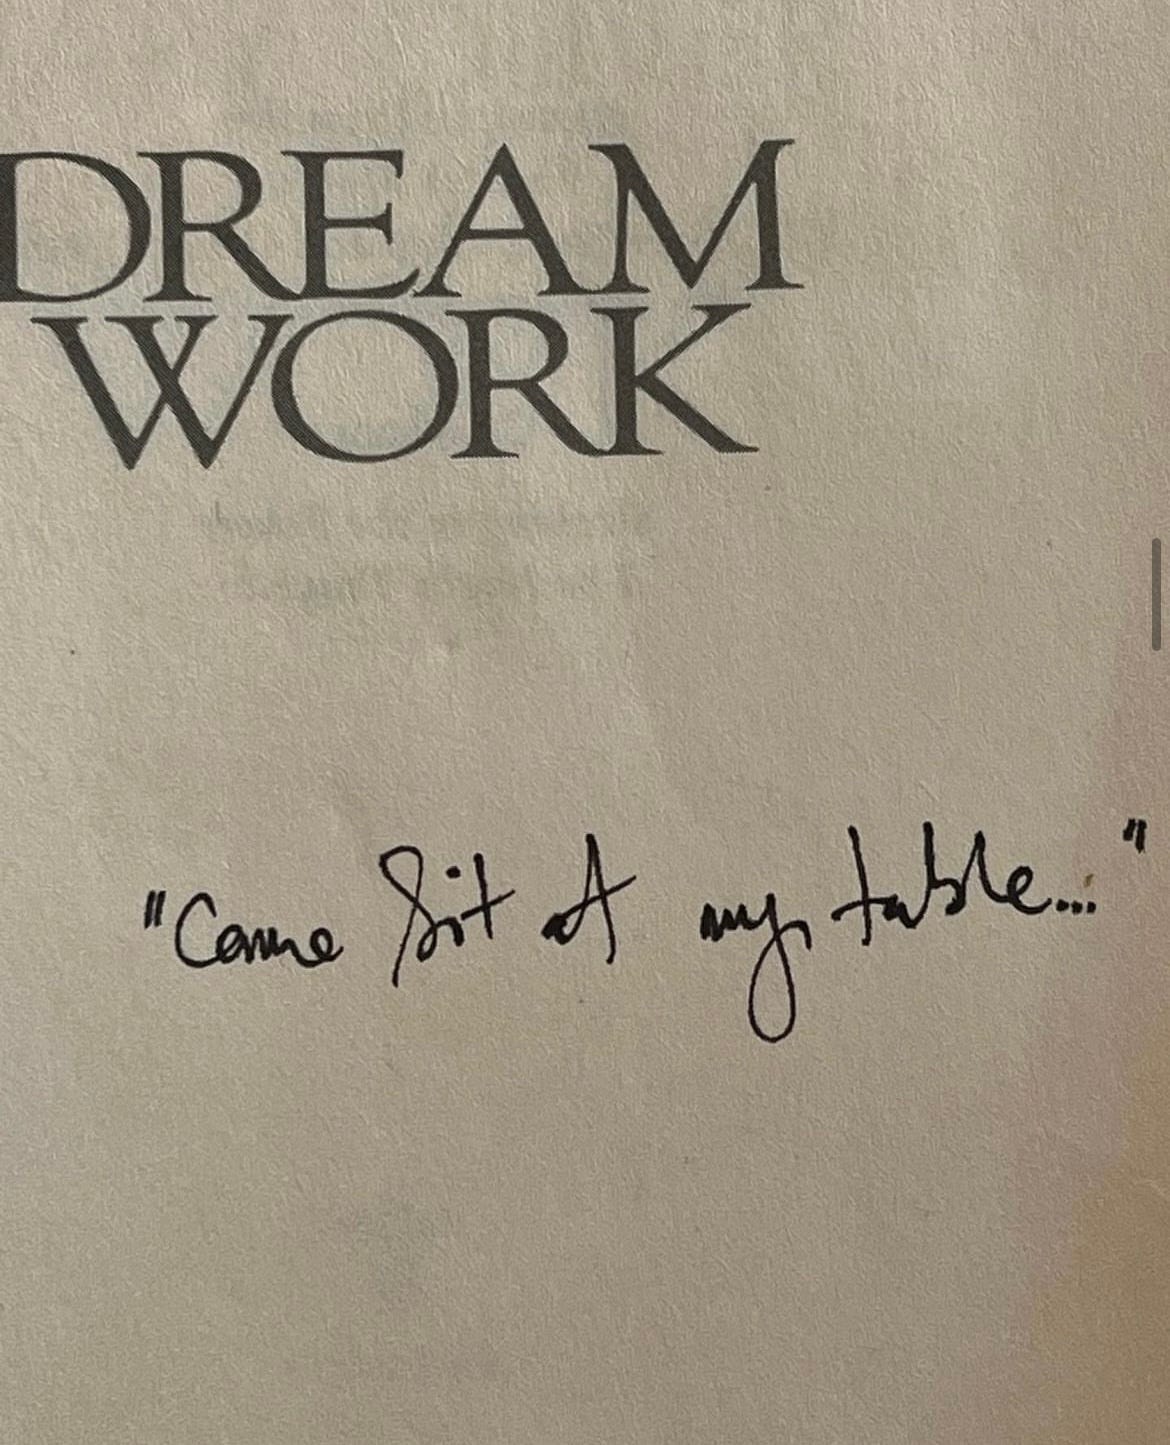 DREAM
WORK
"Come sit at my table..."